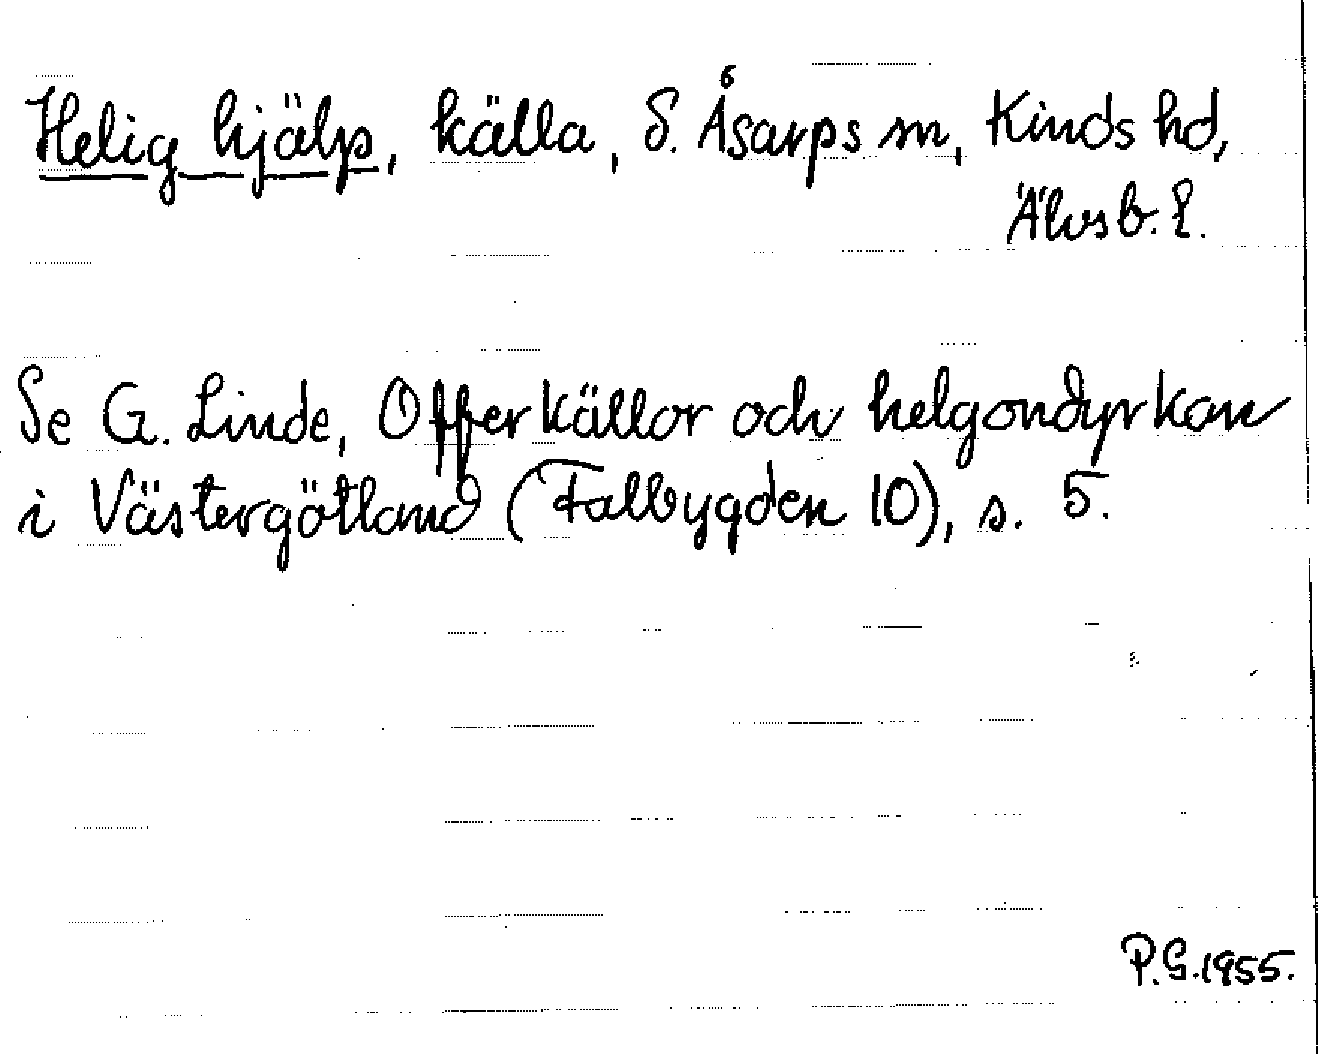 Helig hjälp, källa, S. Åsarps sn, Kinds hd,
Älvsb. l.
Se G. Linde, Offerkällor och helgondyrkan
i Västergötland (Falbygden 10), s. 5.
P.G. 1955.